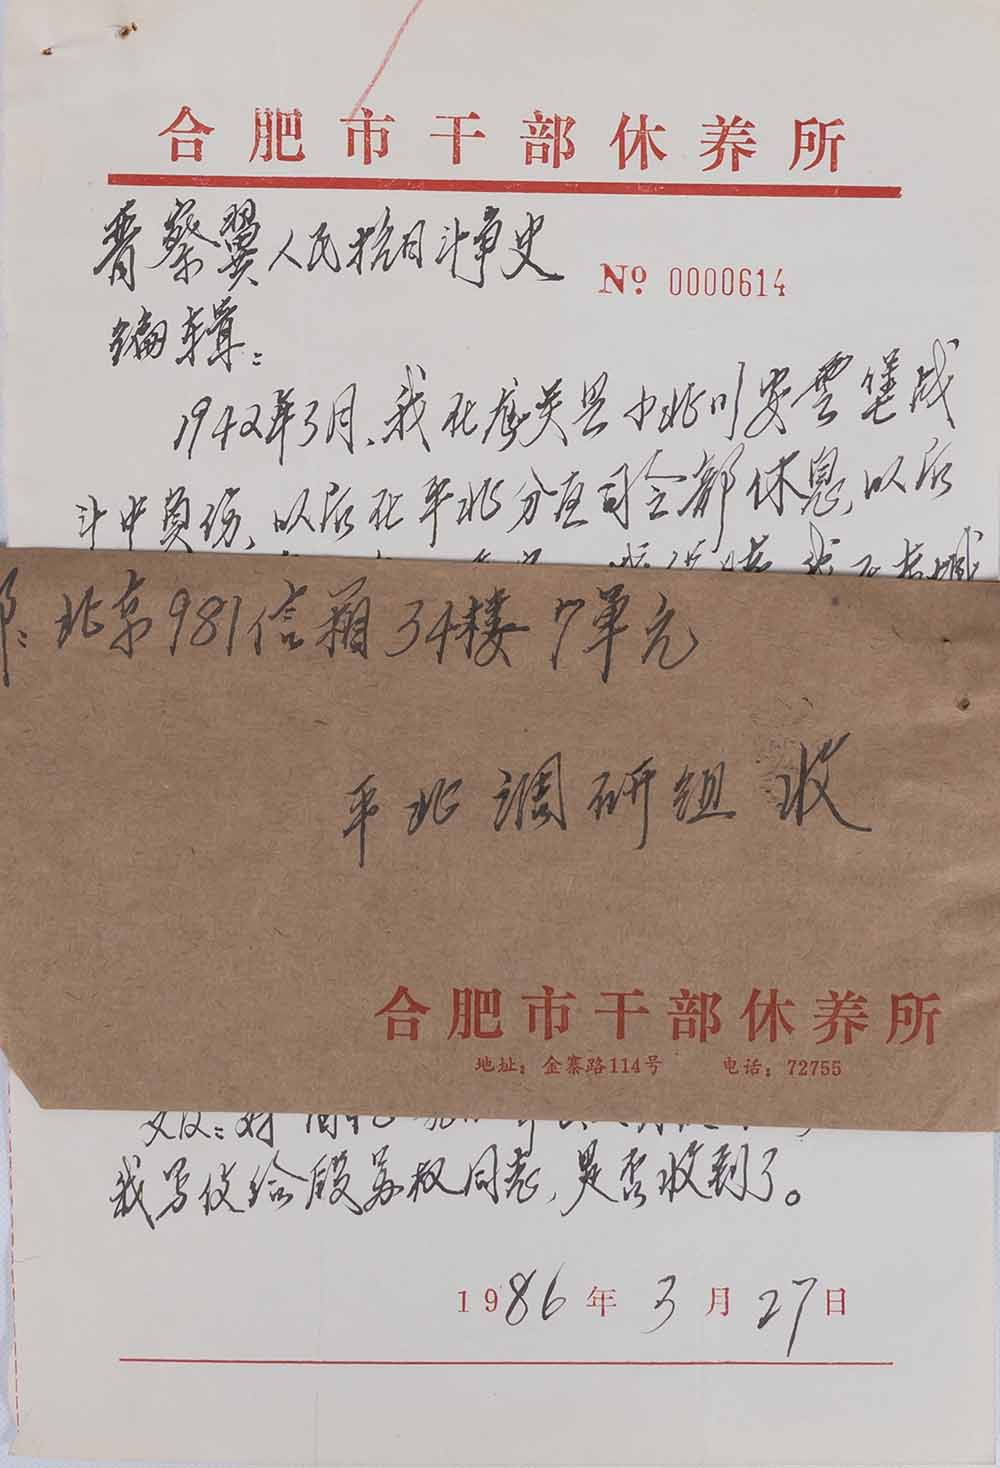 合肥市干部休养所
晋察冀人民抗日斗争史
No 0000614
编辑：
1942年3月、我在
斗中负伤、以后在平北分区司令部休息，以后
北京981信箱34楼7单元
平北调研组 收
合肥市干部休养所
地址：金寨路114号 电话：72755
我写信给段苏权同志，是否收到了。
1986年3月27日